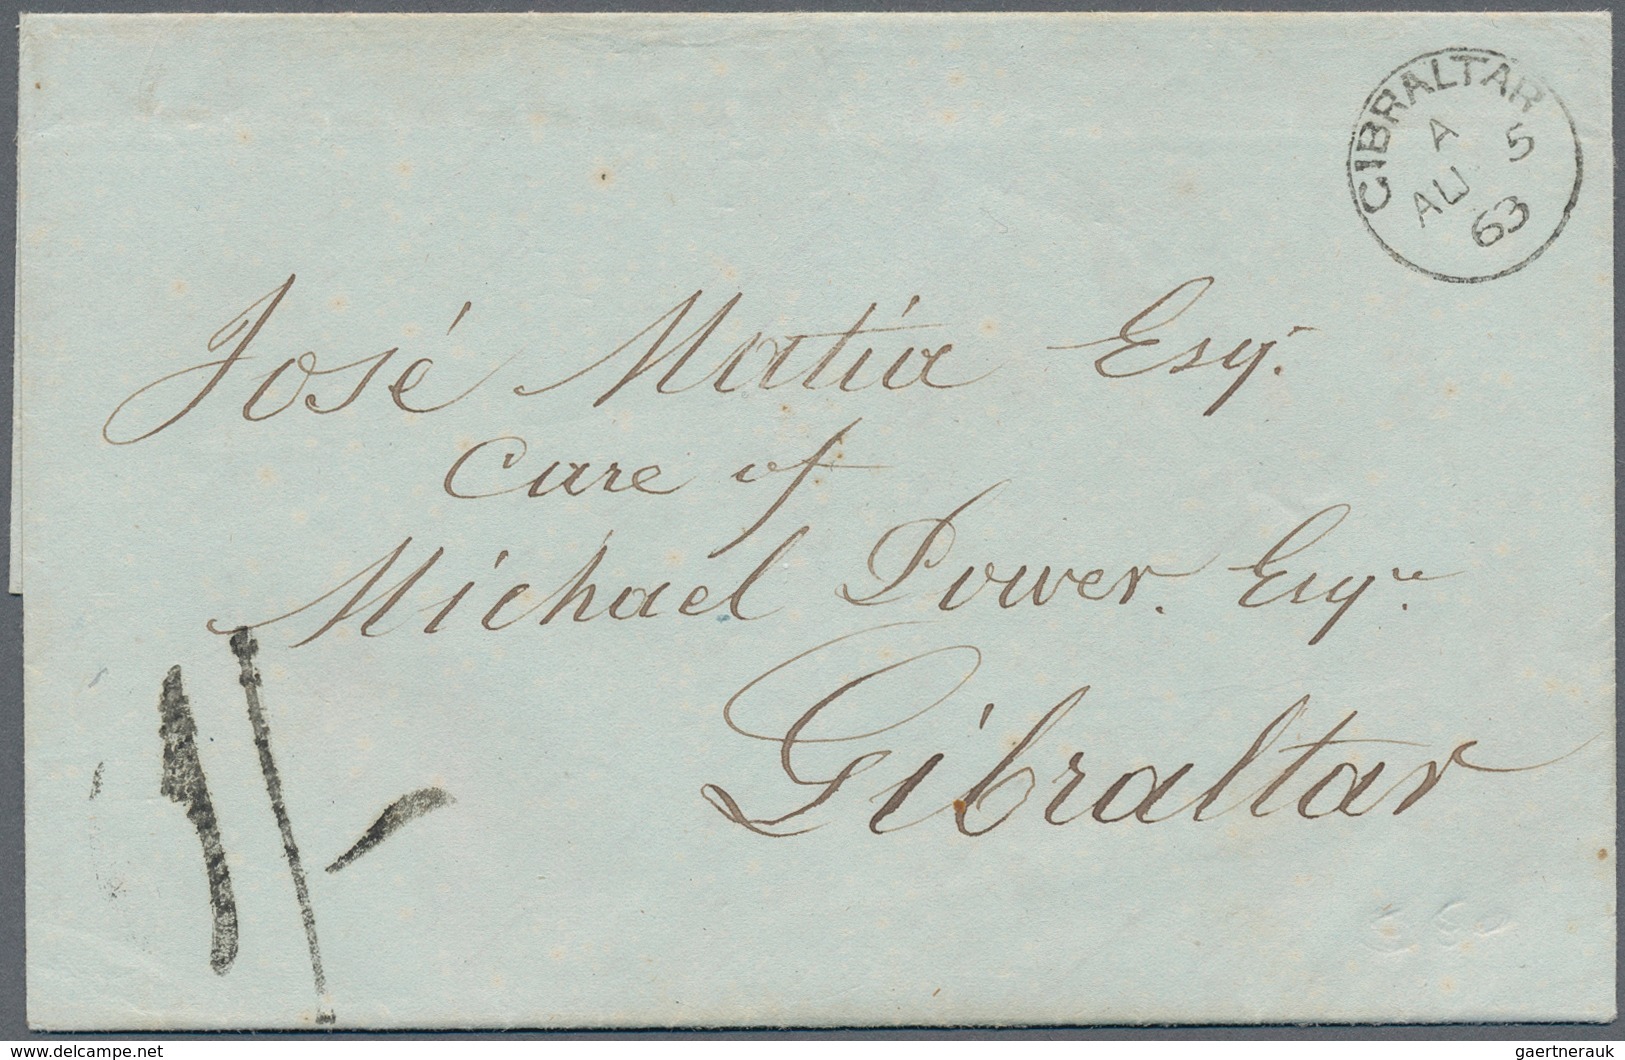 GIBRALTAR
A
AU 5
63
José Matia Esqr.
Care of
Michael Power. Esqre
Gibraltar
1/-
© www.delcampe.net
gaertnerauk